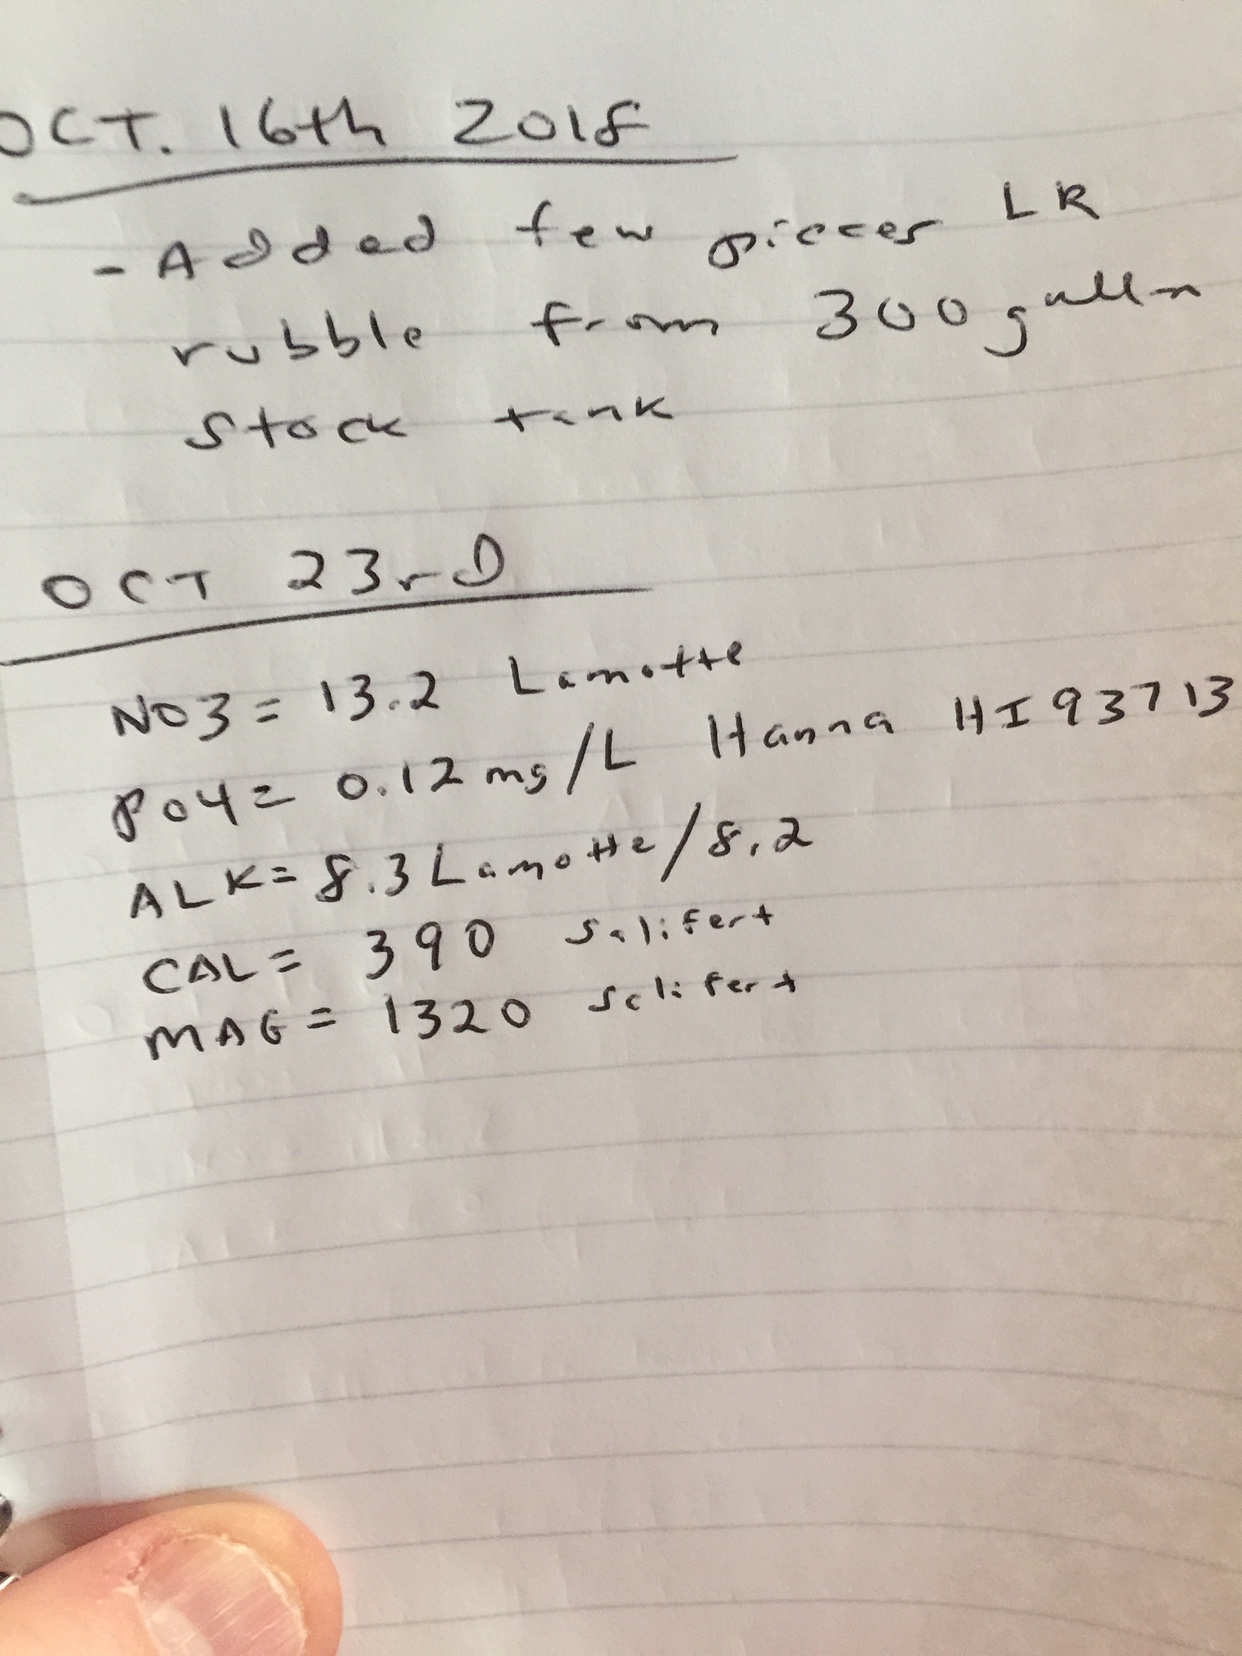 OCT. 16th 2018
- Added few pieces LR
rubble from 300 gallon
stock tank
OCT 23rD
NO3 = 13.2 Lamotte
PO4 = 0.12 mg/L Hanna HI93713
ALK = 8.3 Lamotte/8.2
CAL = 390 salifert
MAG = 1320 salifert